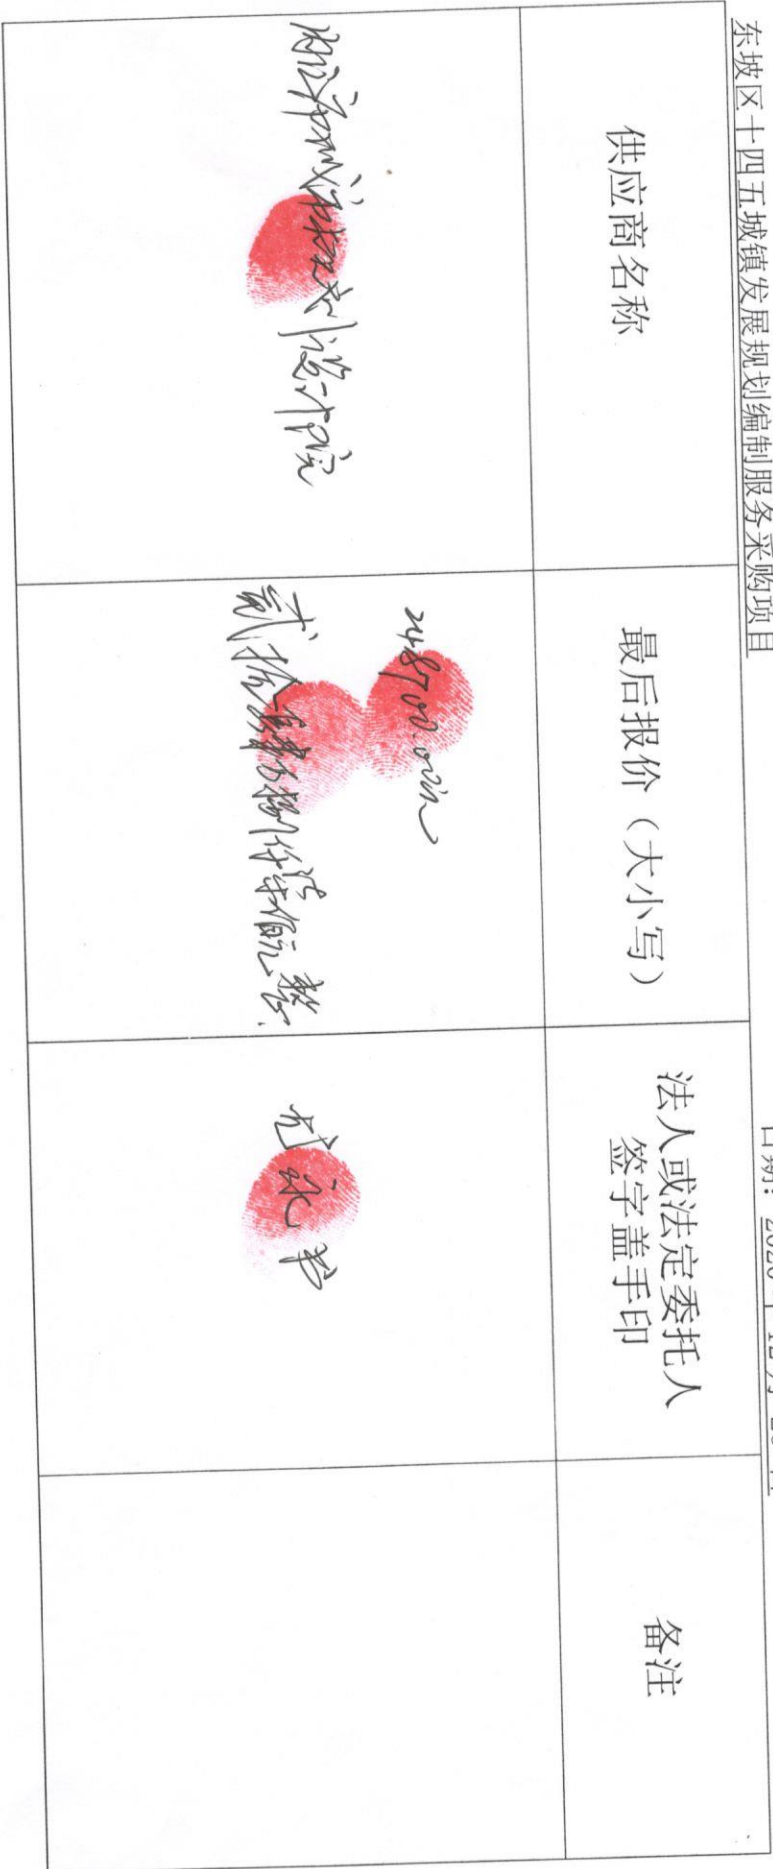 东坡区十四五城镇发展规划编制服务采购项目
日期: 2020 年 12 月
供应商名称
最后报价（大小写）
法人或法定委托人
签字盖手印
备注
设计院
248700.00元
贰拾肆万捌仟柒佰元整